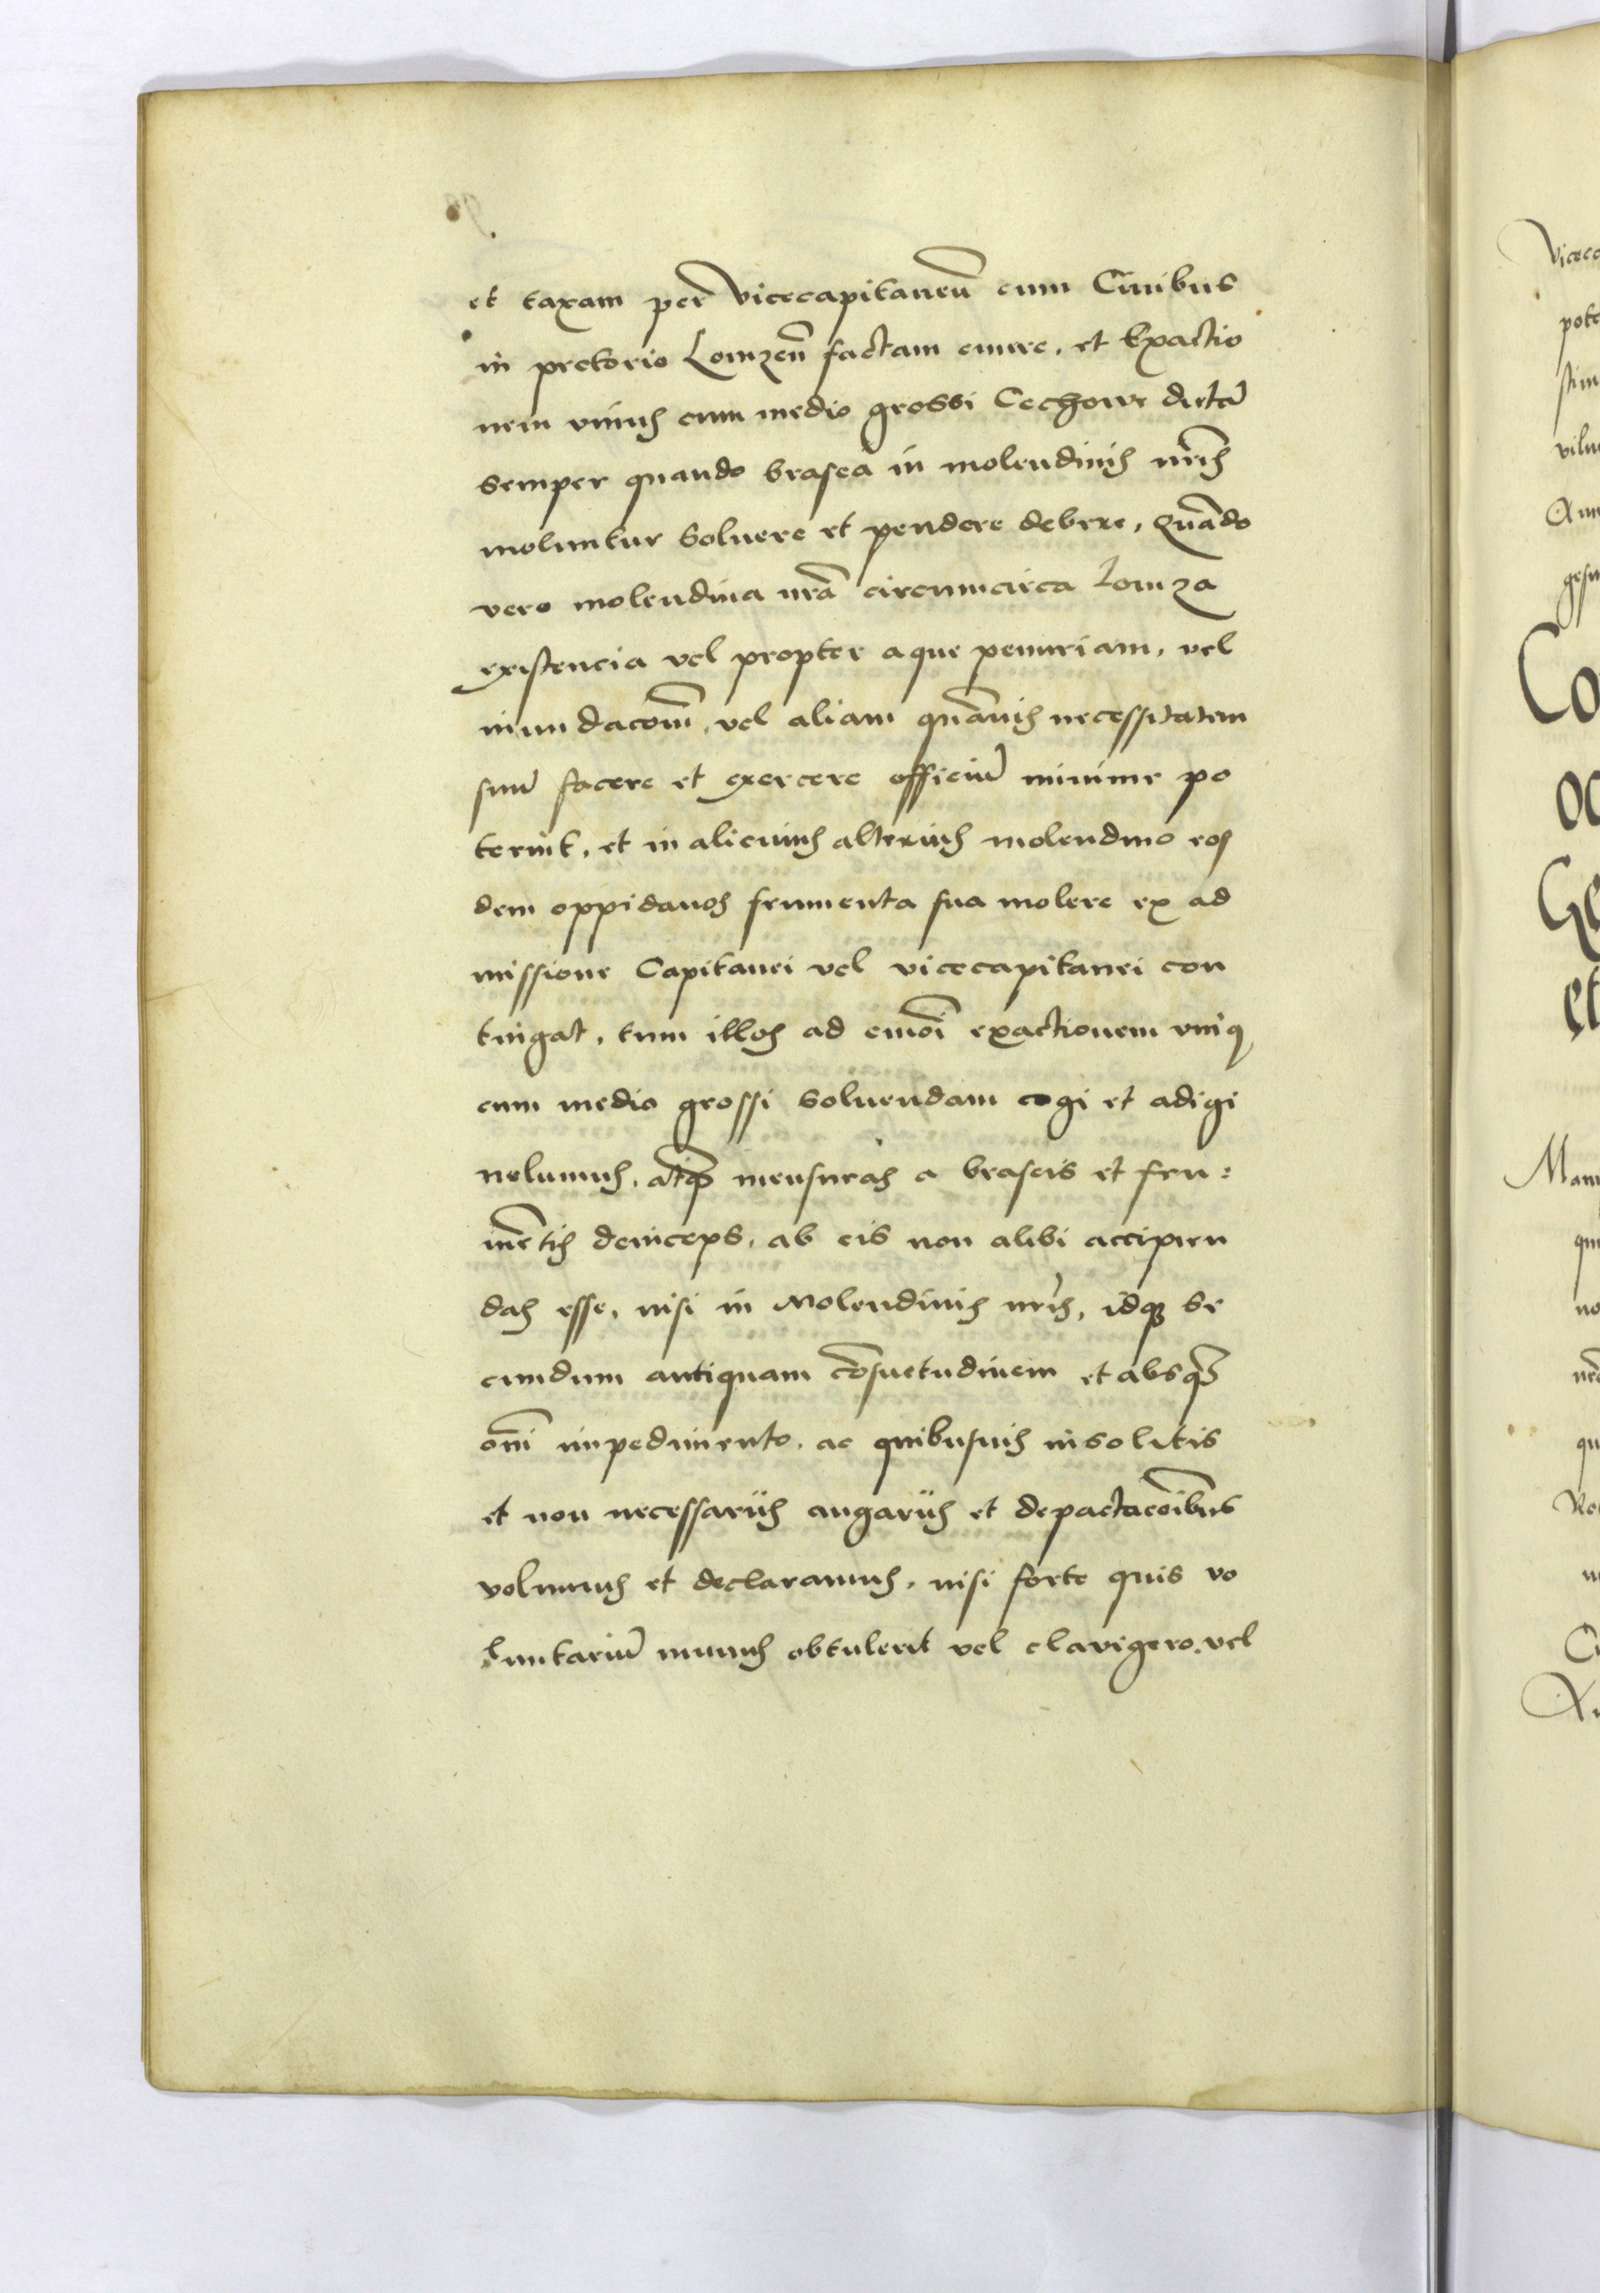 et taxam per vicecapitaneū cum Ciuibus
in pretorio Lomzeñ factam emere, et Exactio
nem vnius cum medio grossi Cechowe dictā
semper quando brasea in molendinis nr̃is
moluntur soluere et pendere debere, Quādo
vero molendina nr̃a circumcirca Lomza
existencia vel propter aque penuriam, vel
inundacōm̃, vel aliam quāuis necessitatem
suū facere et exercere officiū minime po
terint, et in alicuius alterius molendino eos
dem oppidanos frumenta sua molere ex ad
missione Capitanei vel vicecapitanei con
tingat, tum illos ad em̃oi exactionem vniq
cum medio grossi soluendam cogi et adigi
nolumus, atq mensuras a braseis et fru:
mētis deinceps, ab eis non alibi accipien
das esse, nisi in Molendinis nr̃is, idq se
cundum antiquam cōsuetudinem et absq
om̃i impedimento, ac quibusuis insolitis
et non necessariis angariis et depactacōibus
volumus et declaramus, nisi forte quis vo
luntariū munus obtulerit vel clavigero, vel
Vicec
pote
Co
oc
Ge
et
Man
qu
no